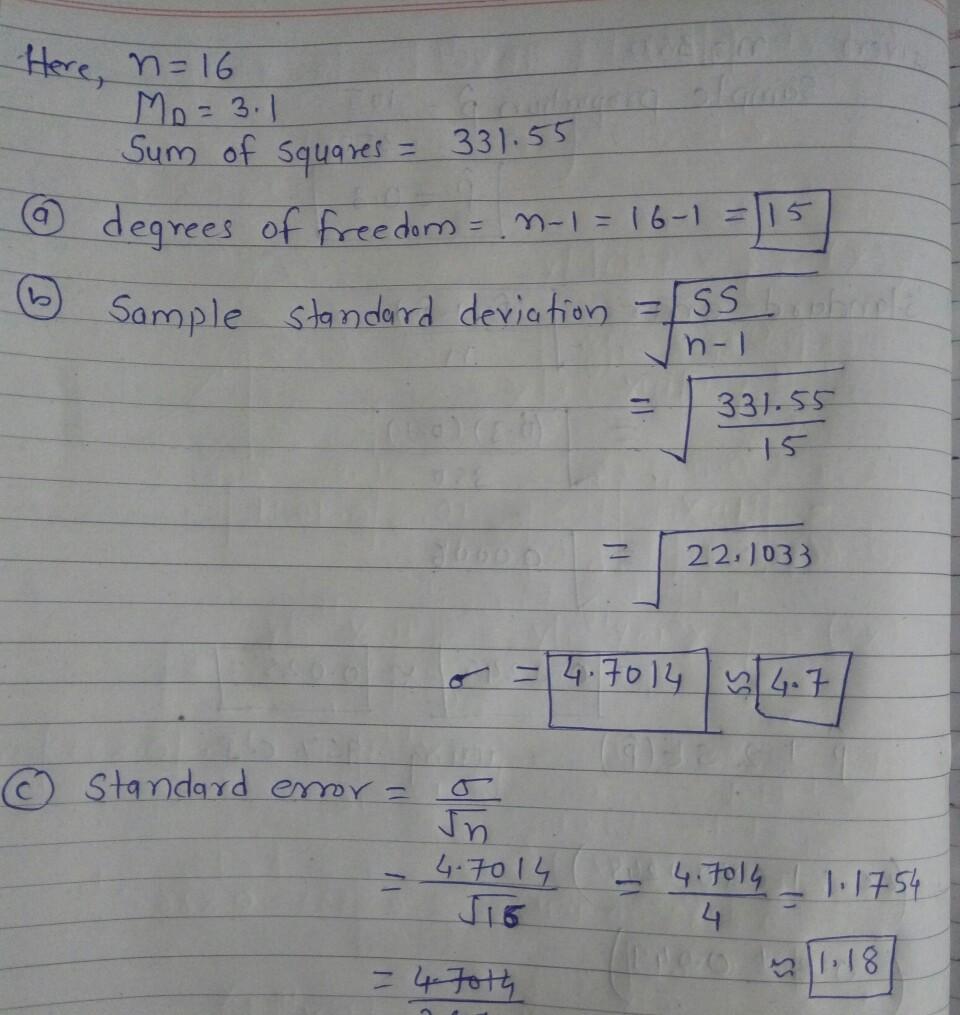 Here, n = 16
M_D = 3.1
Sum of squares = 331.55
(a) degrees of freedom = n-1 = 16-1 = 15
(b) Sample standard deviation = √(SS / n-1)
= √(331.55 / 15)
= √22.1033
σ = 4.7014 ≈ 4.7
(c) Standard error = σ / √n
= 4.7014 / √16 = 4.7014 / 4 = 1.1754
≈ 1.18
= 4.7014